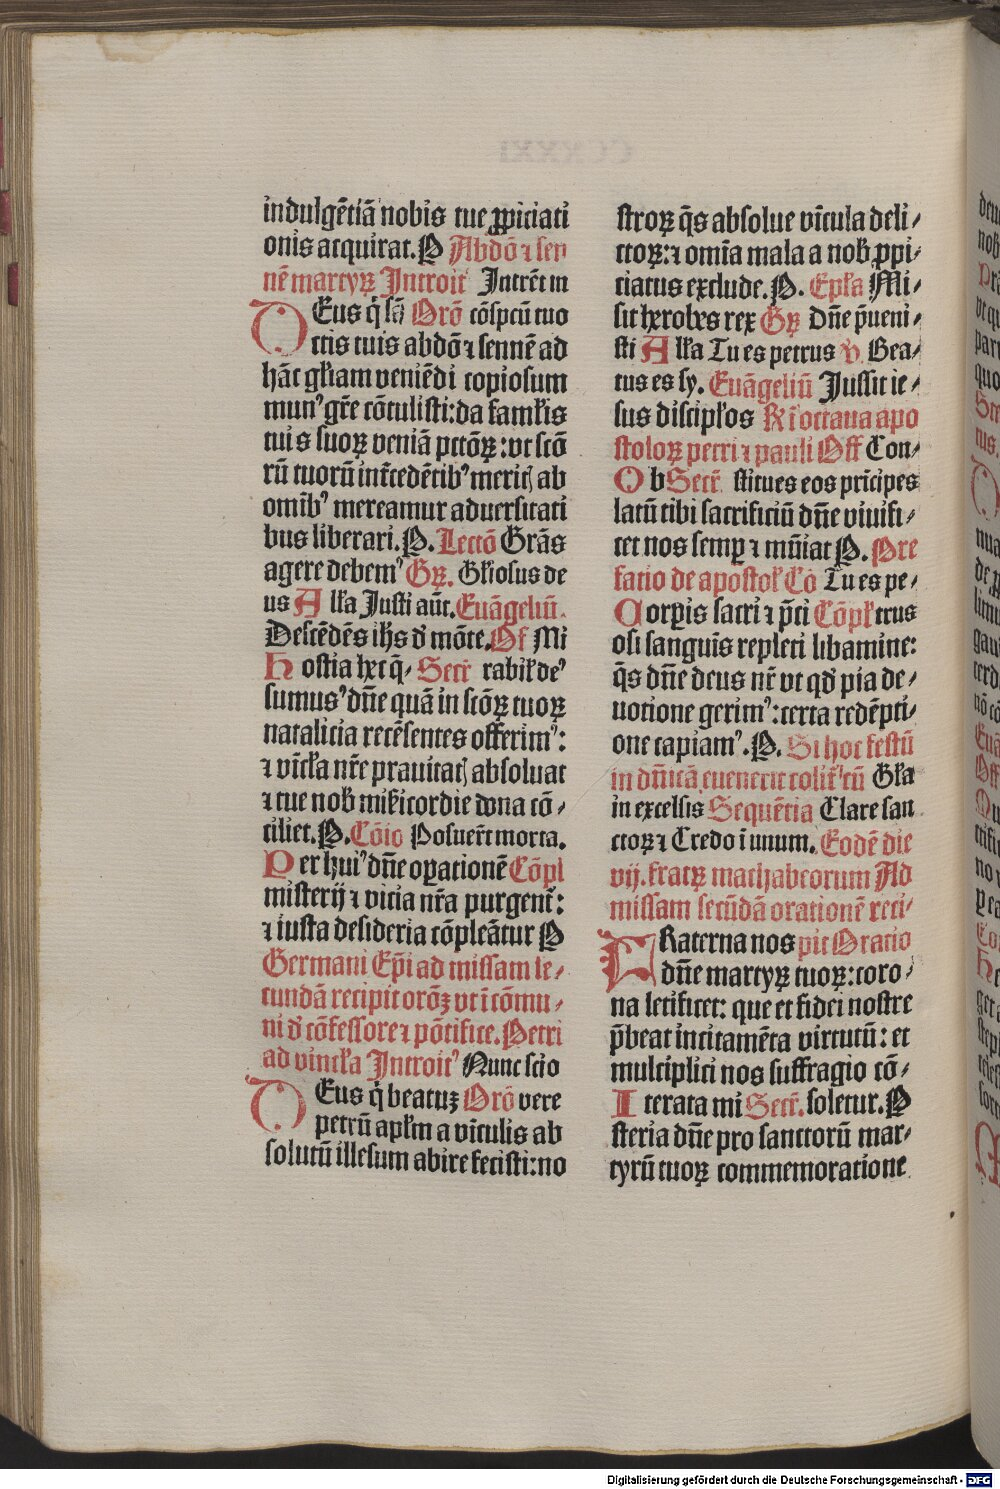 indulgētiā nobis tue ꝓpiciati
onis acquirat. P Abdō ⁊ sen
nē martyrꝝ Introit Intrēt in
DEus q̇ sā Orō cōspcū tuo
ctis tuis abdō ⁊ sennē ad
hāc gƚiam veniēdi copiosum
munꝰ gr̄e cōtulisti: da famƚis
tuis suoꝝ veniā pctōꝝ: vt scō
rū tuorū int̄cedētibꝰ merit̃ ab
omībꝰ mereamur aduersitati
bus liberari. P. Lectō Grās
agere debemꝰ Gꝝ. Gƚiosus de
us Alƚa Justi aūt. Euāgeliū.
Descēdēs ihs d̓ mōte. Of Mi
Hostia hec q̄⸗ Secr̄ rabiƚ deꝰ
sumusꝰ dn̄e quā in scōꝝ tuoꝝ
natalicia recēsentes offerimꝰ:
⁊ vīcƚa nr̄e prauitat̃ absoluat
⁊ tue nob̄ miẜicordie dona cō⸗
ciliet. P. Cōio Posuer̄t morta.
Per huiꝰ dn̄e oꝑationē Cōpl
misterij ⁊ vicia nr̄a purgent̄:
⁊ iusta desideria cōpleātur P
Germani Ep̄i ad missam se⸗
cundā recipit orōꝫ vt ī cōmu⸗
ni d̓ cōfessore ⁊ pōtifice. Petri
ad vincƚa Introitꝰ Nunc scio
DEus q̇ beatuꝫ Orō vere
petrū apƚm a vīculis ab
solutū illesum abire fecisti: no
stroꝝ q̄s absolue vīcula deli⸗
ctoꝝ: ⁊ om̄ia mala a nob̄ ꝓpi⸗
ciatus exclude. P. Epƚa Mi⸗
sit herodes rex Gꝝ Dn̄e p̄ueni⸗
sti Alƚa Tu es petrus v̄. Bea⸗
tus es sy. Euāgeliū Jussit ie⸗
sus discipƚos Rī octaua apo
stoloꝝ petri ⁊ pauli Off Con⸗
ObSecr̄ stitues eos prīcipes
latū tibi sacrificiū dn̄e viuifi⸗
cet nos semꝑ ⁊ mūiat P. Pre
fatio de apostoƚ Cō Tu es pe⸗
Corꝑis sacri ⁊ p̄ci Cōpƚ trus
osi sanguīs repleti libamine:
q̄s dn̄e deus nr̄ vt qd̄ pia de⸗
uotione gerimꝰ: certa redēpti⸗
one capiamꝰ. P. Si hoc festū
in dn̄icā euenerit colit̄ cū Gƚa
in excelsis Sequētia Clare san
ctoꝝ ⁊ Credo ī unum. Eodē die
vij. fratꝝ machabeorum Ad
missam secūdā orationē reci⸗
FRaterna nos pit Oratio
dn̄e martyꝝ tuoꝝ: coro⸗
na letificet: que et fidei nostre
p̄beat incitamēta virtutū: et
multiplici nos suffragio cō⸗
Iterata mi Secr̄. soletur. P
steria dn̄e pro sanctorū mar⸗
tyrū tuoꝝ commemoratione
Digitalisierung gefördert durch die Deutsche Forschungsgemeinschaft - DFG